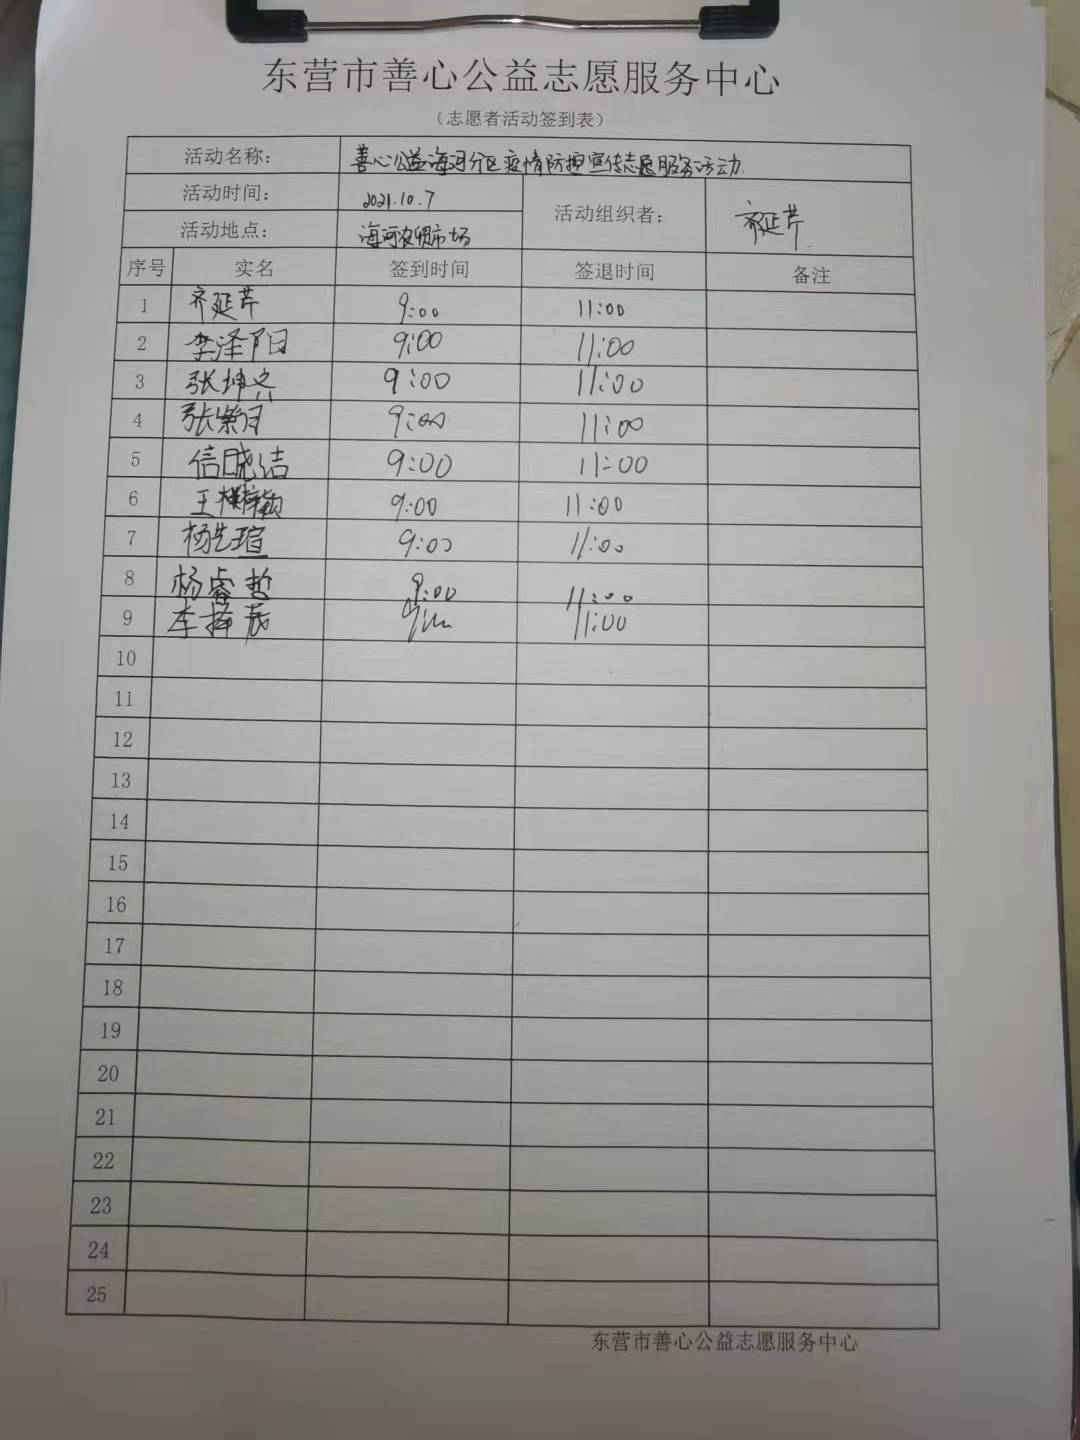 东营市善心公益志愿服务中心
（志愿者活动签到表）
活动名称： 善心公益海河分区疫情防控宣传志愿服务活动
活动时间： 2021.10.7 活动组织者： 齐延芹
活动地点： 海河农贸市场
序号 实名 签到时间 签退时间 备注
1 齐延芹 9:00 11:00
2 李泽阳 9:00 11:00
3 张坤 9:00 11:00
4 张紫月 9:00 11:00
5 信晓洁 9:00 11:00
6 王 颖 9:00 11:00
7 杨先瑄 9:00 11:00
8 杨睿哲 9:00 11:00
9 李 辰 11:00
10
11
12
13
14
15
16
17
18
19
20
21
22
23
24
25
东营市善心公益志愿服务中心